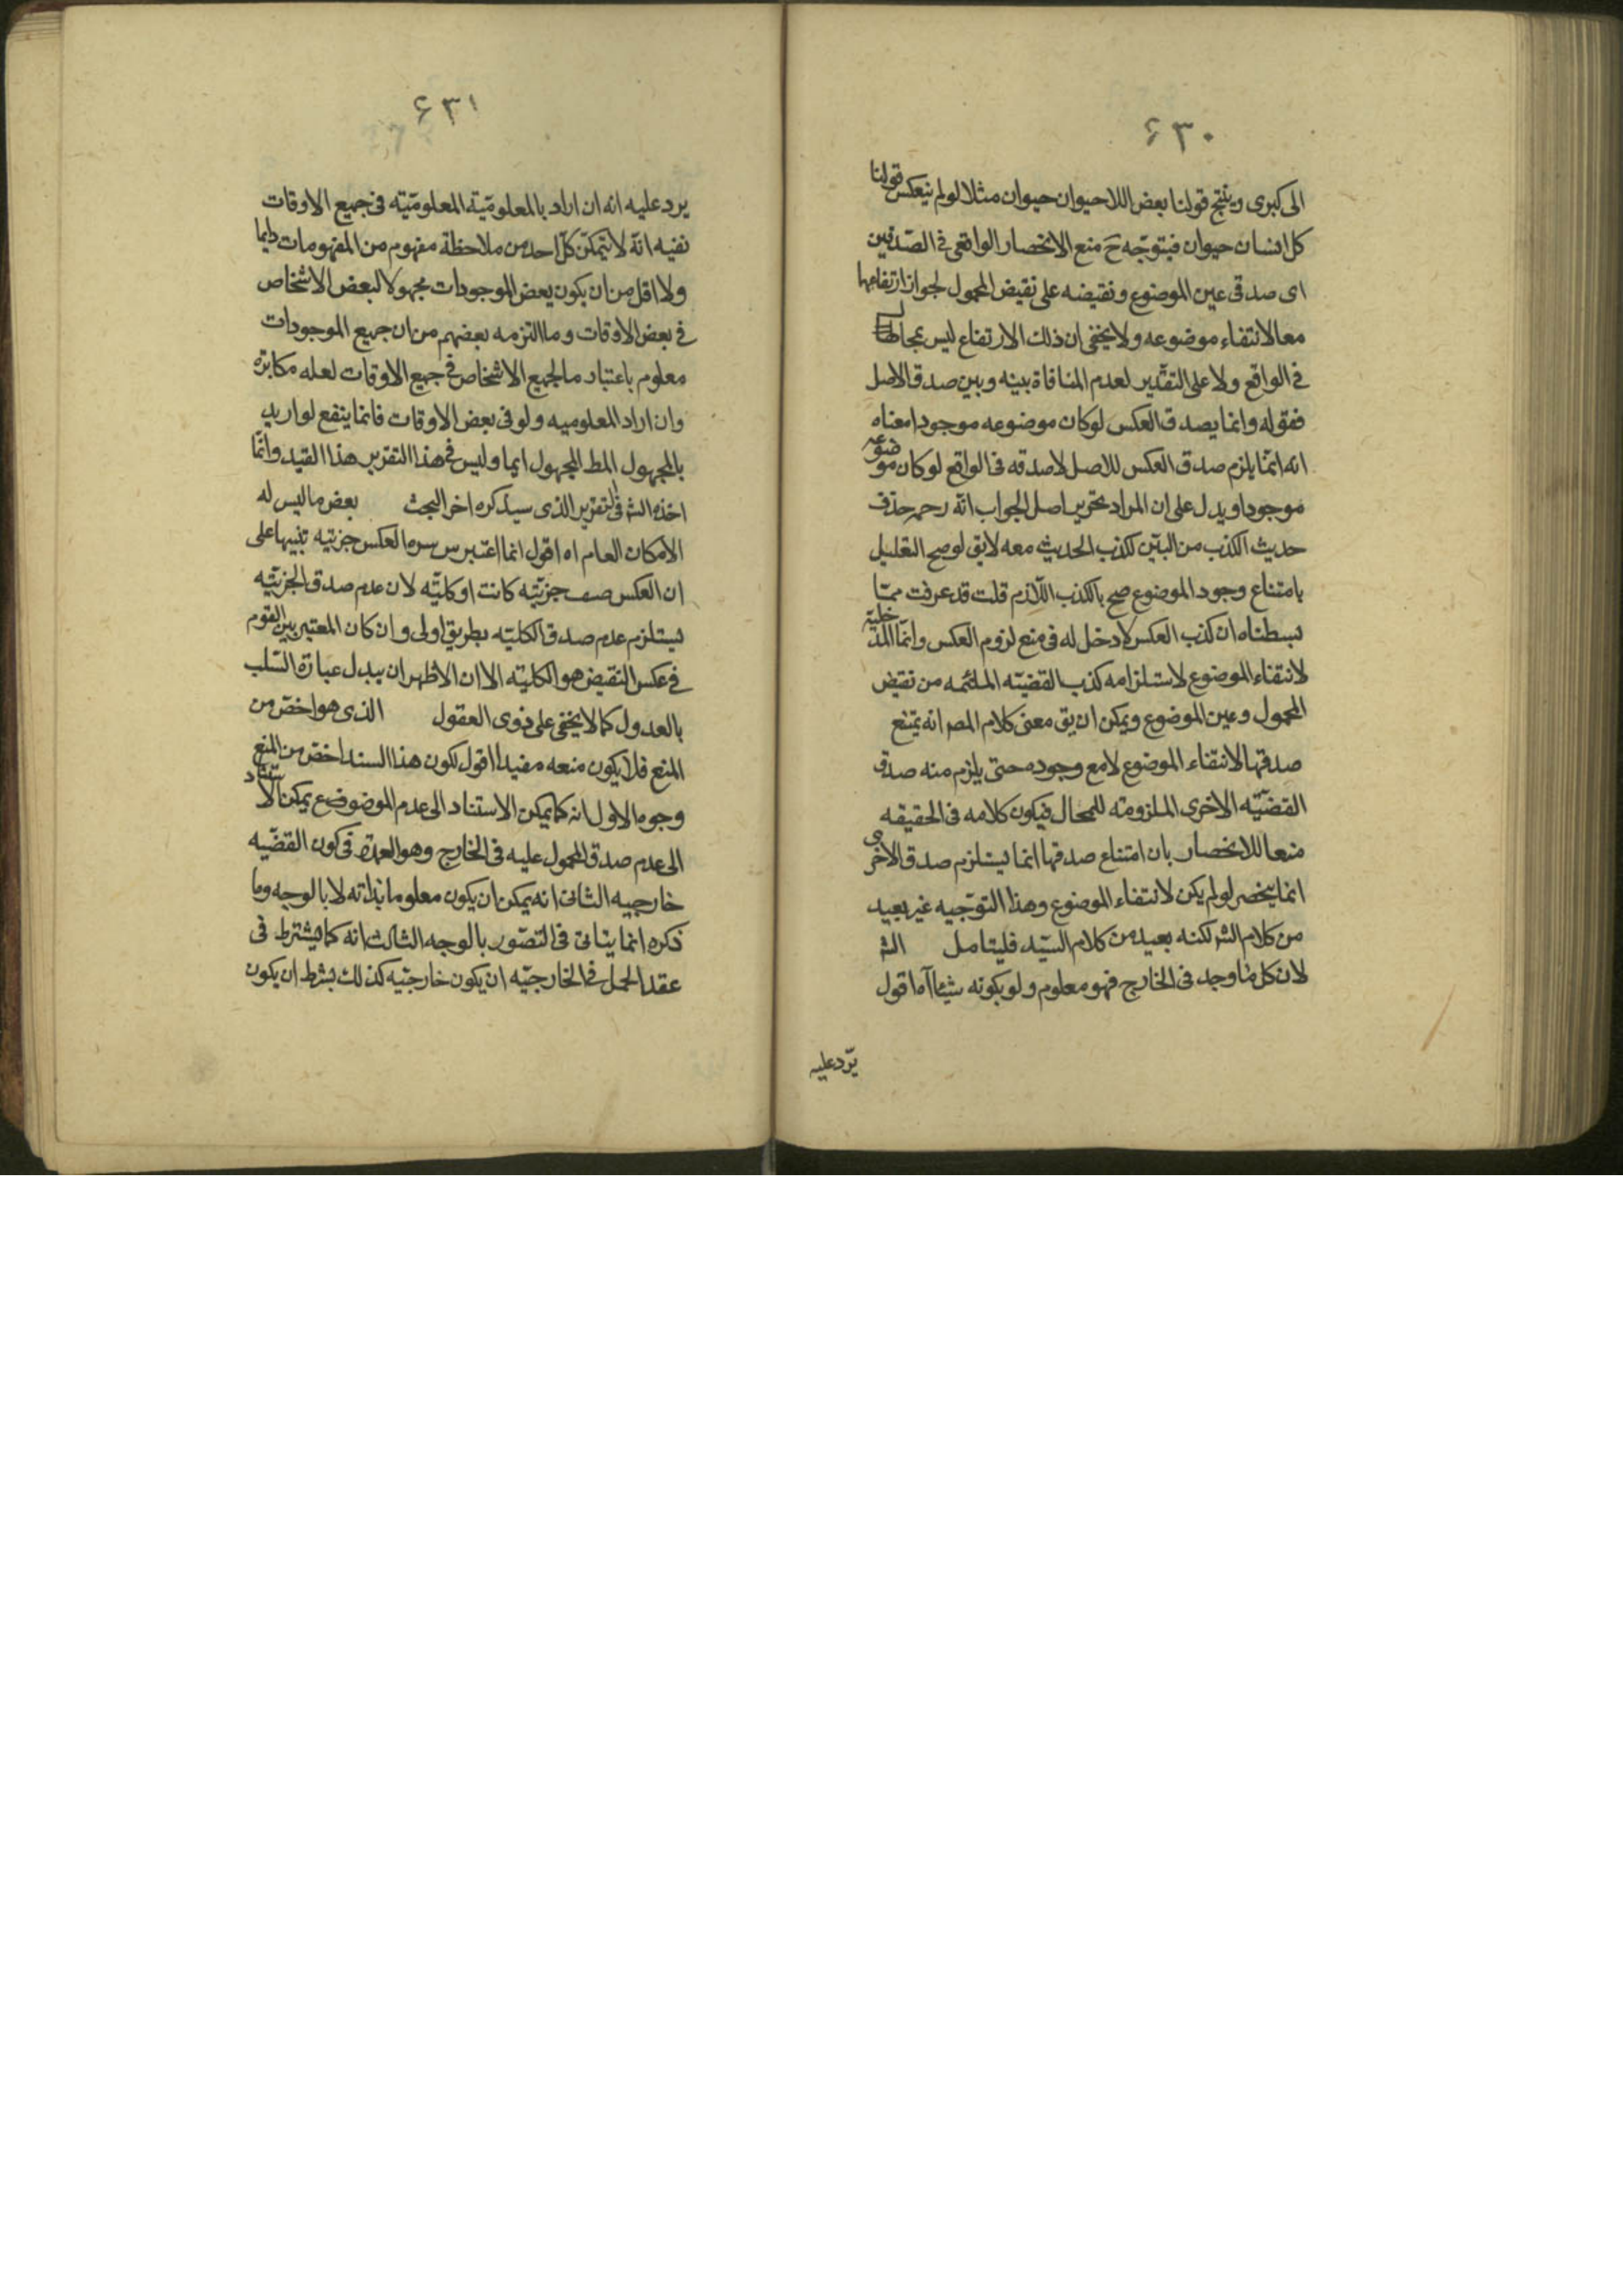 ۶۳۰
الى كبرى وينتج قولنا بعض اللاحيوان حيوان مثلا لو لم ينعكس قولنا
كل انسان حيوان فيتوجّه ح منع الانحصار الواقعى فى الصّدقين
اى صدقى عين الموضوع ونقيضه على نقيض المحمول لجواز ارتفاعهما
معا لانتفاء موضوعه ولا يخفى ان ذلك الارتفاع ليس بمحال
فى الواقع ولا على التقدير لعدم المنافاة بينه وبين صدق الاصل
فقوله وانما يصدق العكس لو كان موضوعه موجودا معناه
انه انّما يلزم صدق العكس للاصل لا صدقه فى الواقع لو كان موضوعه
موجودا ويدل على ان المراد تحرير اصل الجواب انّه رحمه حذف
حديث الكذب من البيّن ككذب الحديث معه لا يق لو صح التعليل
بامتناع وجود الموضوع صح بالكذب اللّازم قلت قد عرفت ممّا
بسطناه ان كذب العكس لا دخل له فى منع لزوم العكس وانّما المدخلية
لانتفاء الموضوع لاستلزامه كذب القضيّه الملتئمه من نقيض
المحمول وعين الموضوع ويمكن ان يق معنى كلام المصر انه يمتنع
صدقها لانتفاء الموضوع لا مع وجوده حتى يلزم منه صدق
القضيّه الاخرى الملزومة للمحال فيكون كلامه فى الحقيقه
منعا للانحصار بان امتناع صدقها انما يستلزم صدق الاخرى
انما ينحصر لو لم يكن لانتفاء الموضوع وهذا التوجّيه غير بعيد
من كلام الشر لكنه بعيد من كلام السيّد فليتامل الشر
لان كل ما وجد فى الخارج فهو معلوم ولو بكونه شيئا آه اقول
يرّد عليه
۶۳۱
يرد عليه انه ان اراد بالمعلوميّة المعلوميّته فى جميع الاوقات
نفيه انّه لا يتمكّن كلّ احد من ملاحظة مفهوم من المفهومات دايما
ولا اقل من ان يكون بعض الموجودات مجهولا لبعض الاشخاص
فى بعض الاوقات وما التزمه بعضهم من ان جميع الموجودات
معلوم باعتبار ما لجميع الاشخاص فى جميع الاوقات لعله مكابرة
وان اراد المعلوميه ولو فى بعض الاوقات فانما ينفع لو اريد
بالمجهول المط المجهول ايما وليس فى هذا التقرير هذا القيد وانّما
اخذه الشر فى التقرير الذى سيذكره اخر البحث بعض ما ليس له
الامكان العام اه اقول انما اعتبر سره العكس جزئيّه تنبيها على
ان العكس صف جزئيّه كانت او كليّه لان عدم صدق الجزئيّه
يستلزم عدم صدق الكليّه بطريق اولى وان كان المعتبر بين القوم
فى عكس النقيض هو الكليّه الا ان الاظهر ان يبدل عبارة السّلب
بالعدول كما لا يخفى على ذوى العقول الذى هو اخصّ من
المنع فلا يكون منعه مفيدا اقول لكون هذا السند اخصّ من المنع
وجوه الاول انه كما يمكن الاستناد الى عدم الموضوضع يمكن الاستناد
الى عدم صدق المحمول عليه فى الخارج وهو العمدة فى كون القضيّه
خارجيه الثانى انه يمكن ان يكون معلوما بذاته لا بالوجه وما
ذكره انما ينافى فى التصّور بالوجه الثالث انه كما يشترط فى
عقد الحمل فى الخارجيّه ان يكون خارجيّه كذلك بشرط ان يكون